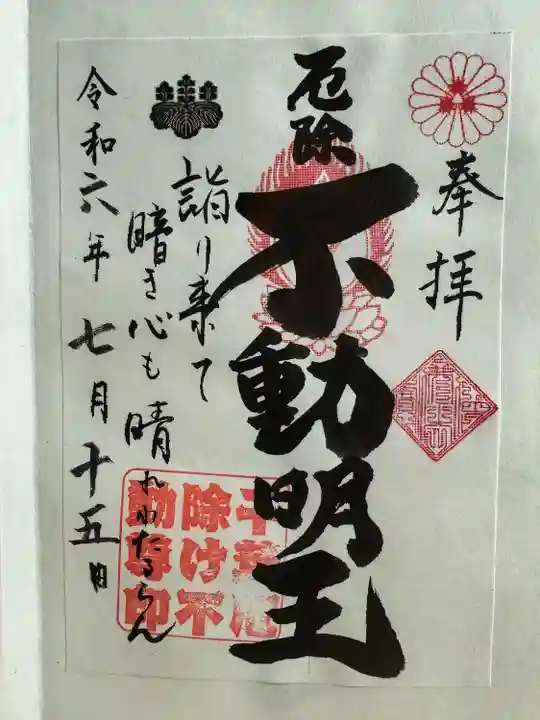 奉拝
厄除
不動明王
詣り来て
暗き心も晴れわたるらん
令和六年七月十五日
千葉厄
除け不
動尊印